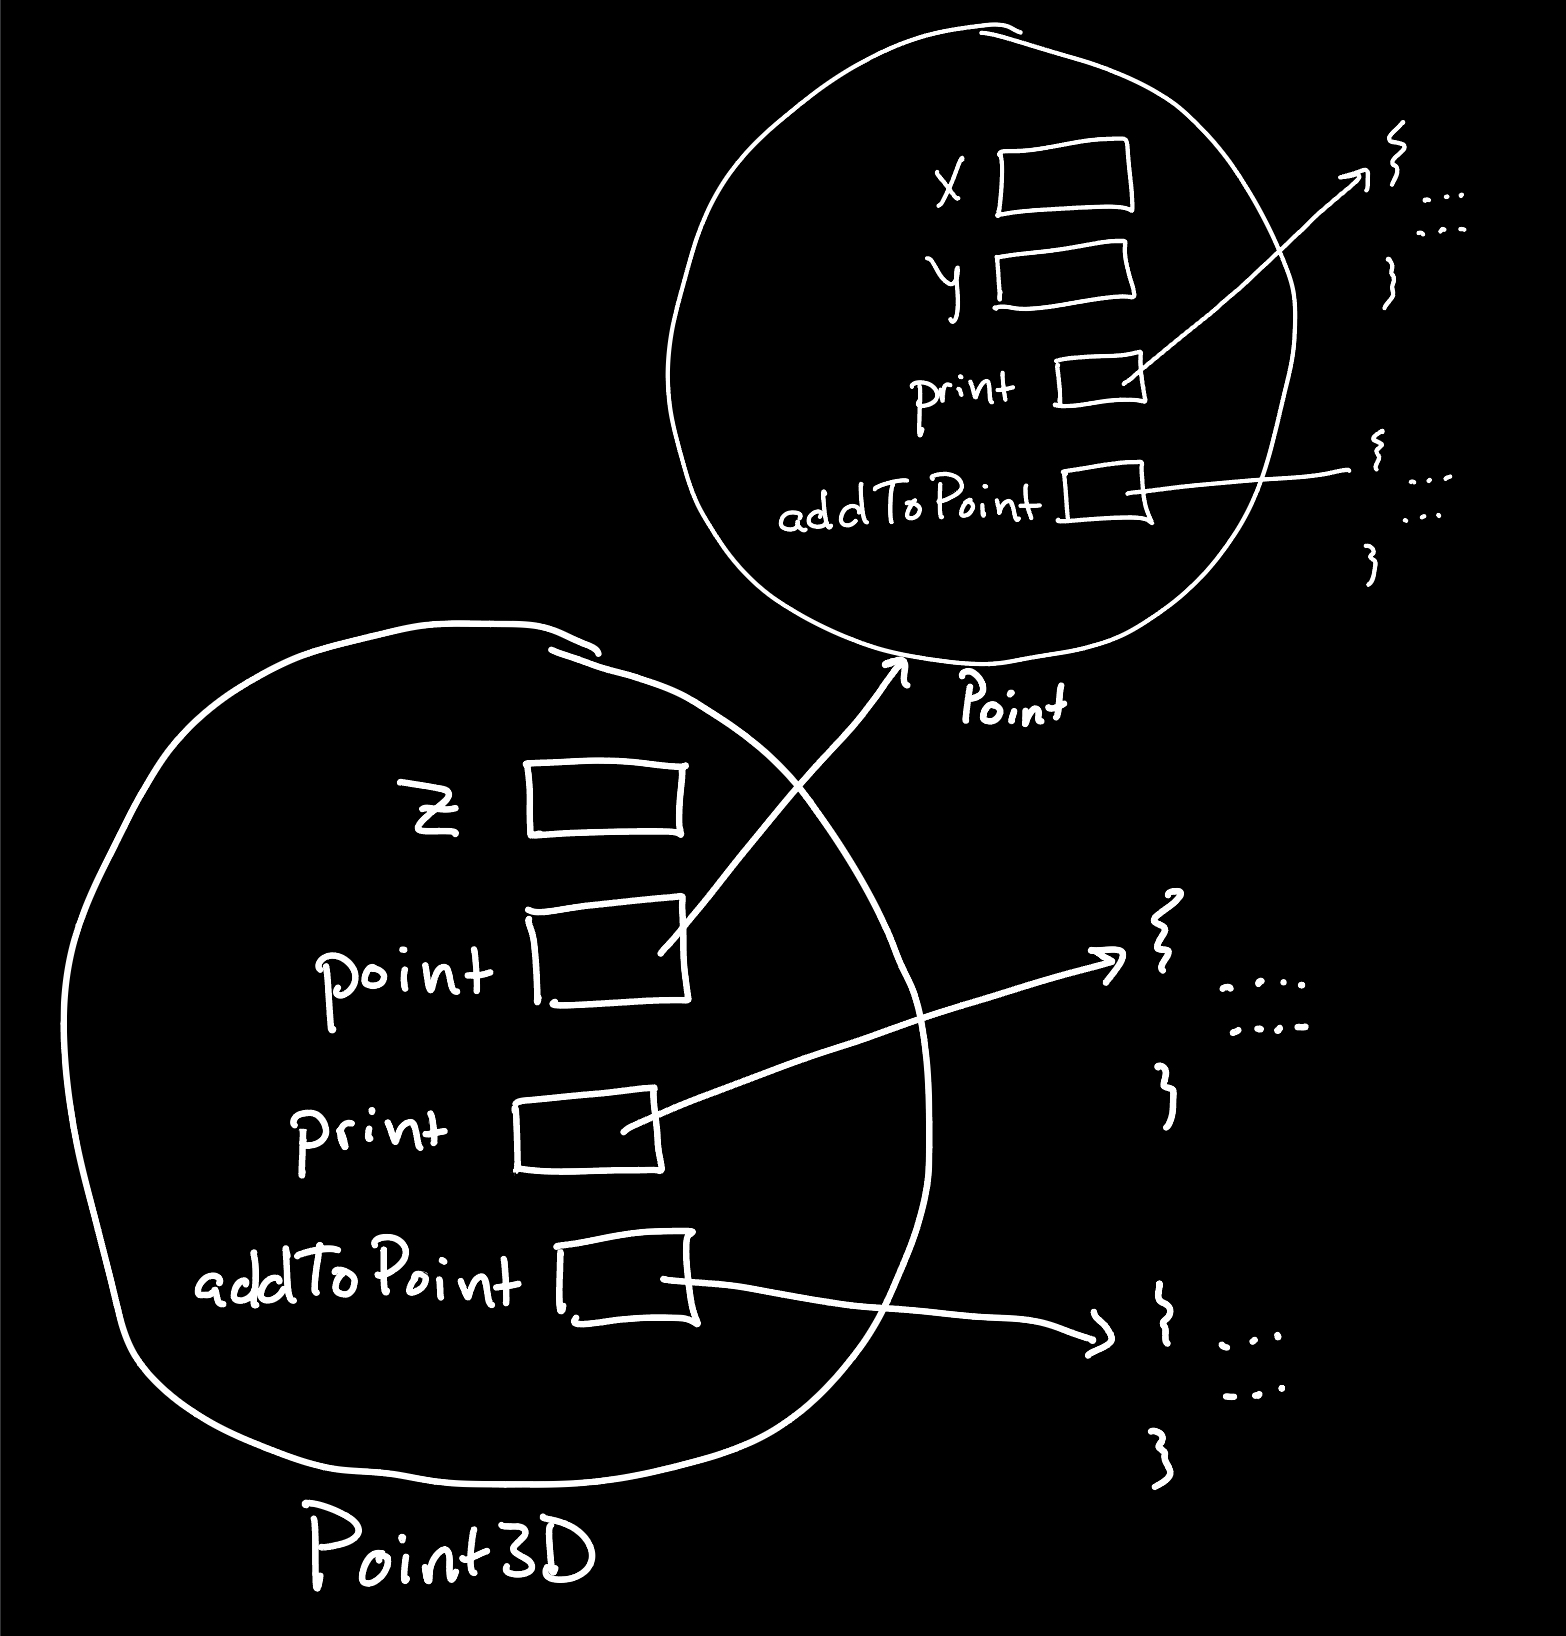 x
y
print
addToPoint
{
... 
...
}
{
...
...
}
Point
z
point
print
addToPoint
{
....
....
}
{
...
...
}
Point3D